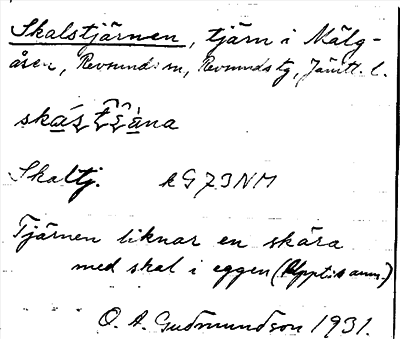 Skalstjärnen, tjärn i Mälg-
åsen, Revsunds sn, Revsunds tg, Jämtl. l.
Skaltj. kG73NM
Tjärnen liknar en skära
med skal i eggen (Uppl:s anm.)
O. A. Gudmundson 1931.